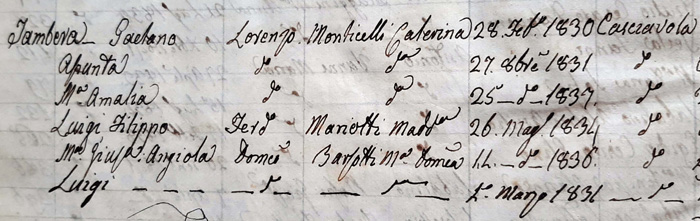 Tambera_ Gaetano Lorenzo Monticelli Caterina 28. Feb.º 1830 Cascravola
Apunta dº dª 27. 8bre 1831 dº
Mª Amalia dº dª 25_dº_1837. dº
Luigi Filippo Ferdº Mariotti Maddª 26. Magº 1834 dº
Mª Giusª Angiola Domcº Barsotti Mª Domca 12._dº 1836. dº
Luigi _ _ _ _ dº _ _ dº _ Marzo 1831 _ dº